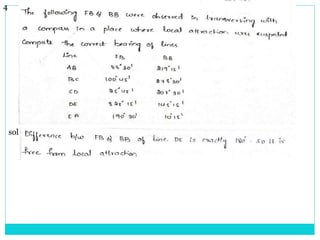 4
The following FB & BB were observed in traversing with
a compass in a place where local attraction was suspected
Compute the correct bearing of lines
Line FB BB
AB
BC 100°45'
CD 25°45' 207°30'
DE 325°15' 145°15'
EA 190°30' 10°15'
sol Difference b/w FB & BB of line DE is exactly 180°. So it is
free from local attraction